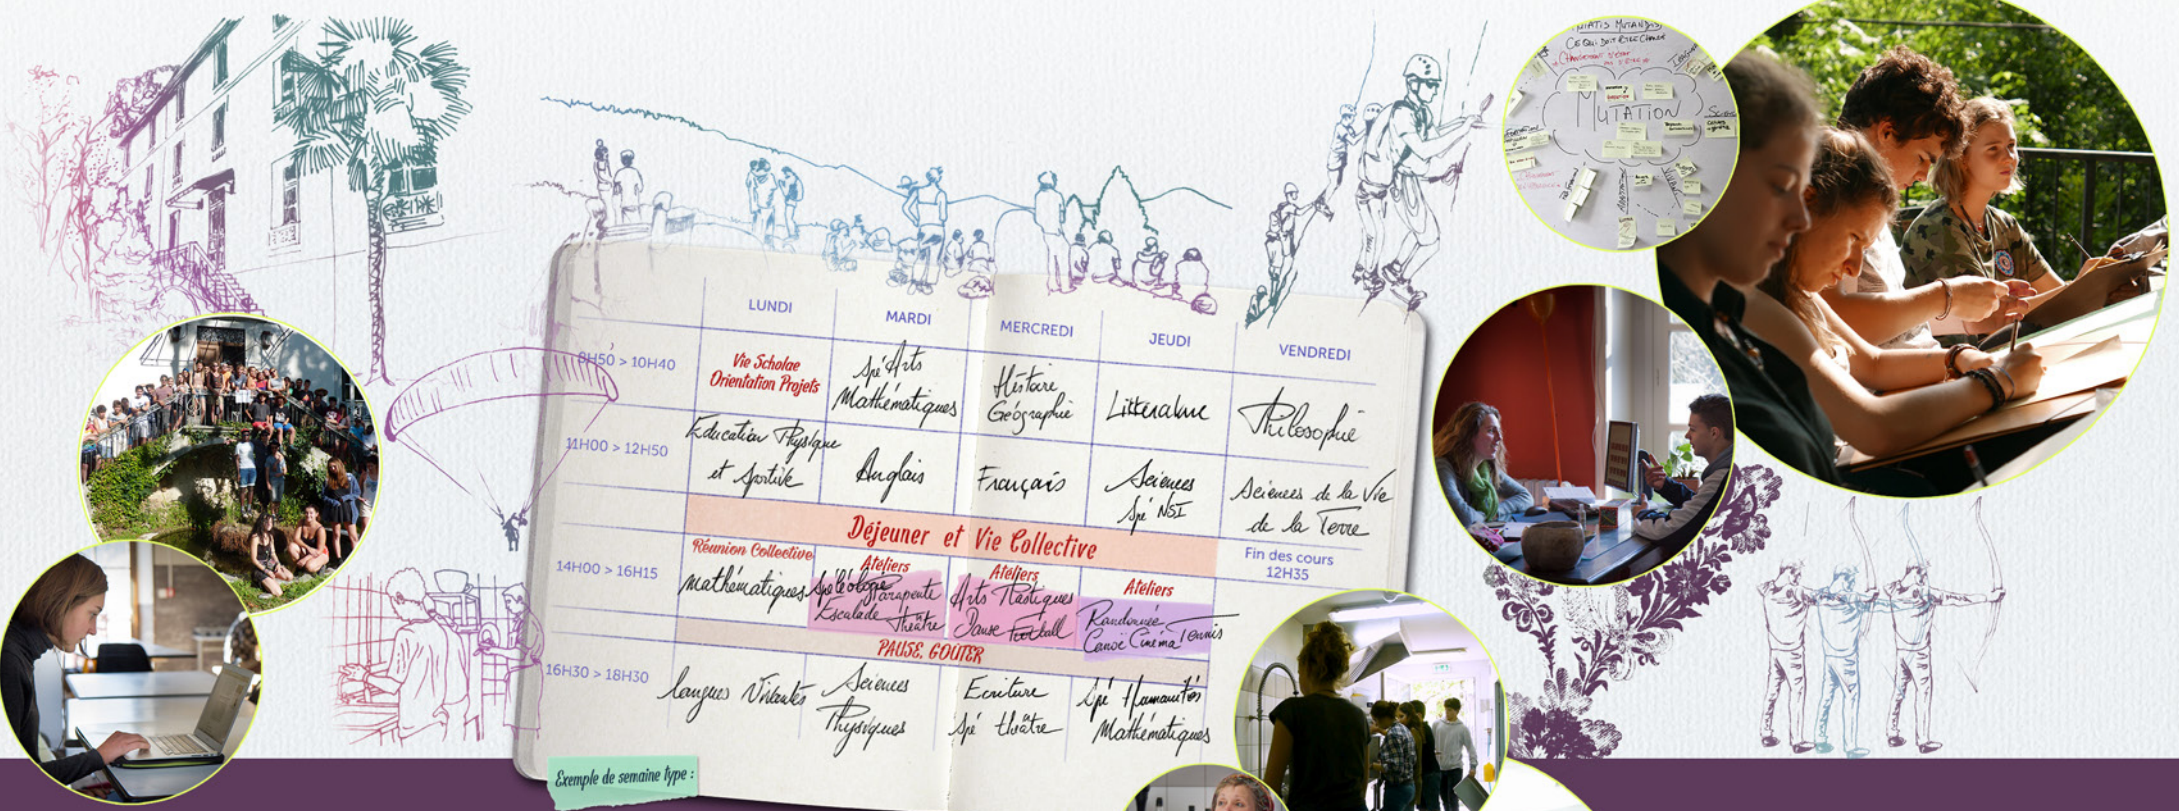 MUTATIS MUTANDIS
CE QUI DOIT ÊTRE CHANGÉ
MUTATION
LUNDI
MARDI
MERCREDI
JEUDI
VENDREDI
8H50 > 10H40
Vie Scholae
Orientation Projets
Spé Arts
Mathématiques
Histoire
Géographie
Littérature
Philosophie
11H00 > 12H50
Education Physique
et Sportive
Anglais
Français
Sciences
Spé NSI
Sciences de la Vie
de la Terre
Déjeuner et Vie Collective
Fin des cours
12H35
14H00 > 16H15
Réunion Collective
mathématiques
Ateliers
Spéléologie Parapente
Escalade Théâtre
Ateliers
Arts Plastiques
Danse Football
Ateliers
Randonnée
Canoë Cinéma Tennis
PAUSE, GOÛTER
16H30 > 18H30
langues Vivantes
Sciences
Physiques
Ecriture
Spé théâtre
Spé Humanités
Mathématiques
Exemple de semaine type :